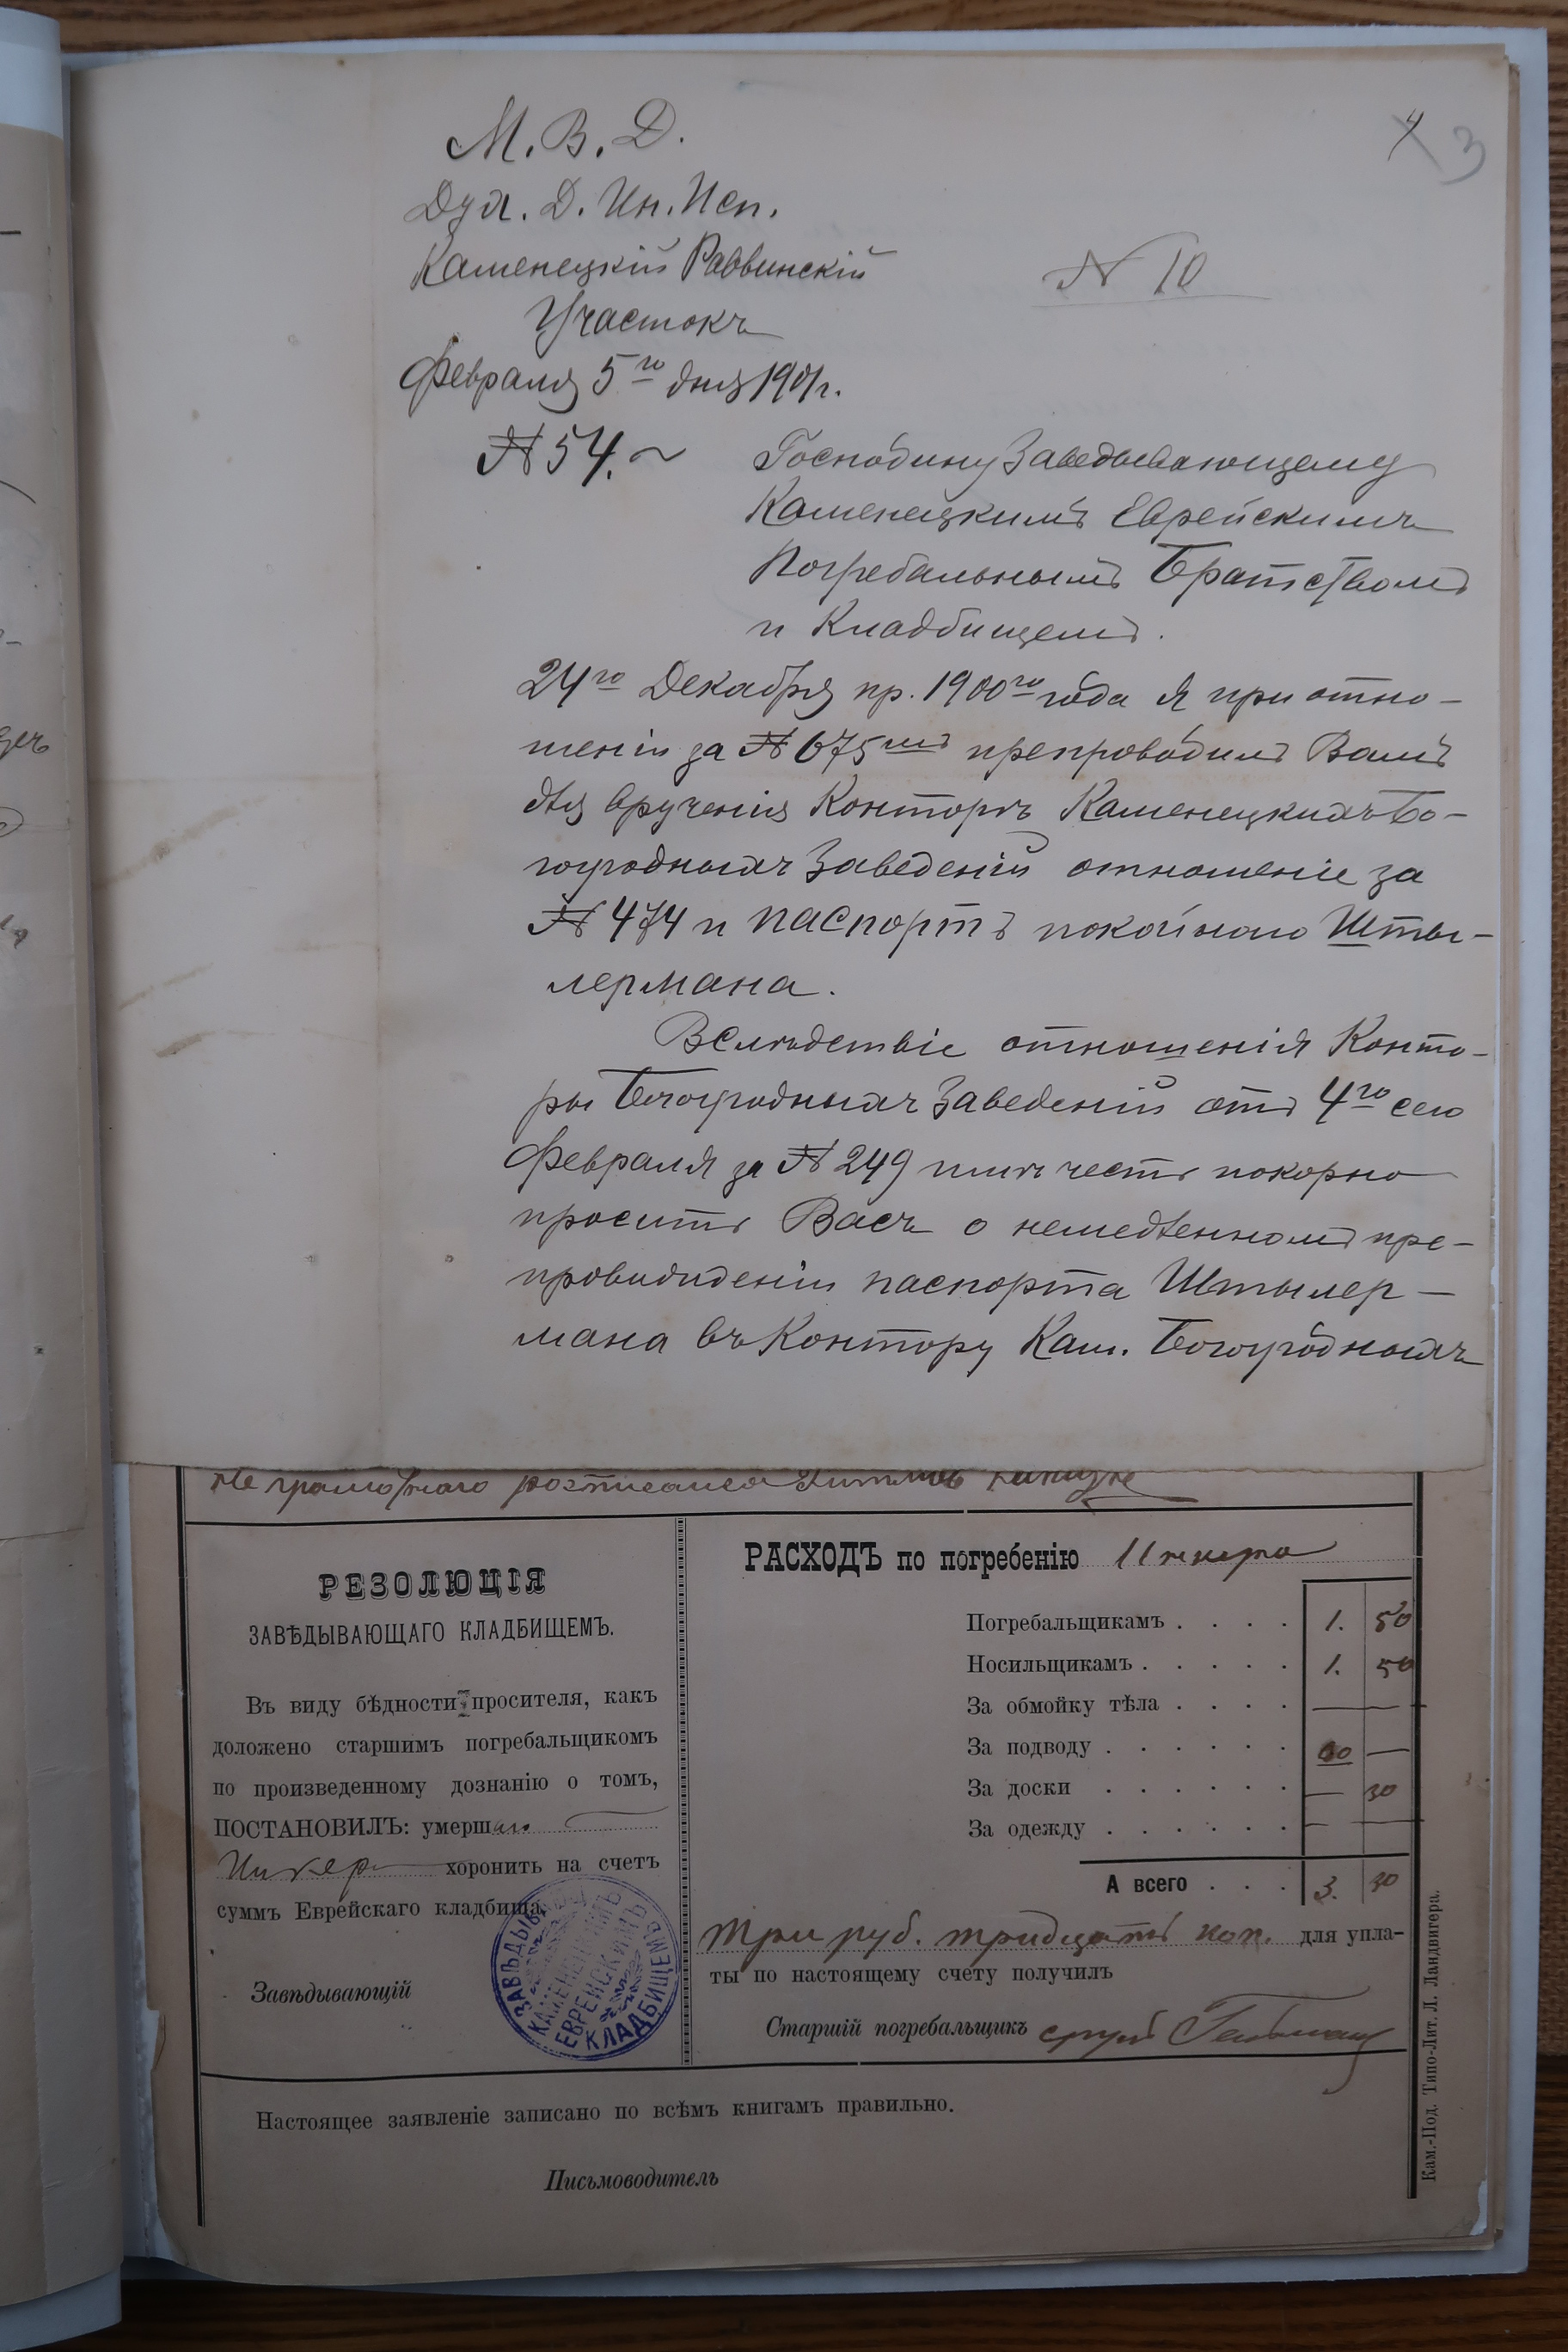 4 3
М. В. Д.
Дух. Д. Ин. Исп.
Каменецкій Раввинскій
№ 10
Участокъ
Февраля 5го дня 1901г.
№ 54.
Господину Заведывающему
Каменецкимъ Еврейскимъ
Погребальнымъ Братствомъ
и Кладбищемъ.
24го Декабря пр. 1900го года я при отно-
шеніи за № 675мъ препроводилъ Вамъ
для врученія Конторѣ Каменецкихъ Бо-
гоугодныхъ Заведеній отношеніе за
№ 474 и паспортъ покойнаго Шты-
лермана.
Вслѣдствіе отношенія Конто-
ры Богоугодныхъ Заведеній отъ 4го сего
Февраля за № 249 имѣю честь покорно
просить Васъ о немедленномъ пре-
паспорта Штылер-
мана въ Контору Кам. Богоугодныхъ
РЕЗОЛЮЦІЯ
ЗАВѢДЫВАЮЩАГО КЛАДБИЩЕМЪ.
Въ виду бѣдности просителя, какъ
доложено старшимъ погребальщикомъ
по произведенному дознанію о томъ,
ПОСТАНОВИЛЪ: умерш
хоронить на счетъ
суммъ Еврейскаго кладбища.
Завѣдывающій
ЗАВѢДЫВ. КАМЕНЕЦКИМЪ ЕВРЕЙСКИМЪ КЛАДБИЩЕМЪ
РАСХОДЪ по погребенію
Погребальщикамъ . . . . 1. 50
Носильщикамъ . . . . . 1. 50
За обмойку тѣла . . . . —
За подводу . . . . . . —
За доски . . . . . . — 30
За одежду . . . . . . — —
А всего . . . 3. 30
три руб. тридцать коп. для упла-
ты по настоящему счету получилъ
Старшій погребальщикъ
Настоящее заявленіе записано по всѣмъ книгамъ правильно.
Письмоводитель
Кам.-Под. Типо-Лит. Л. Ландвигера.